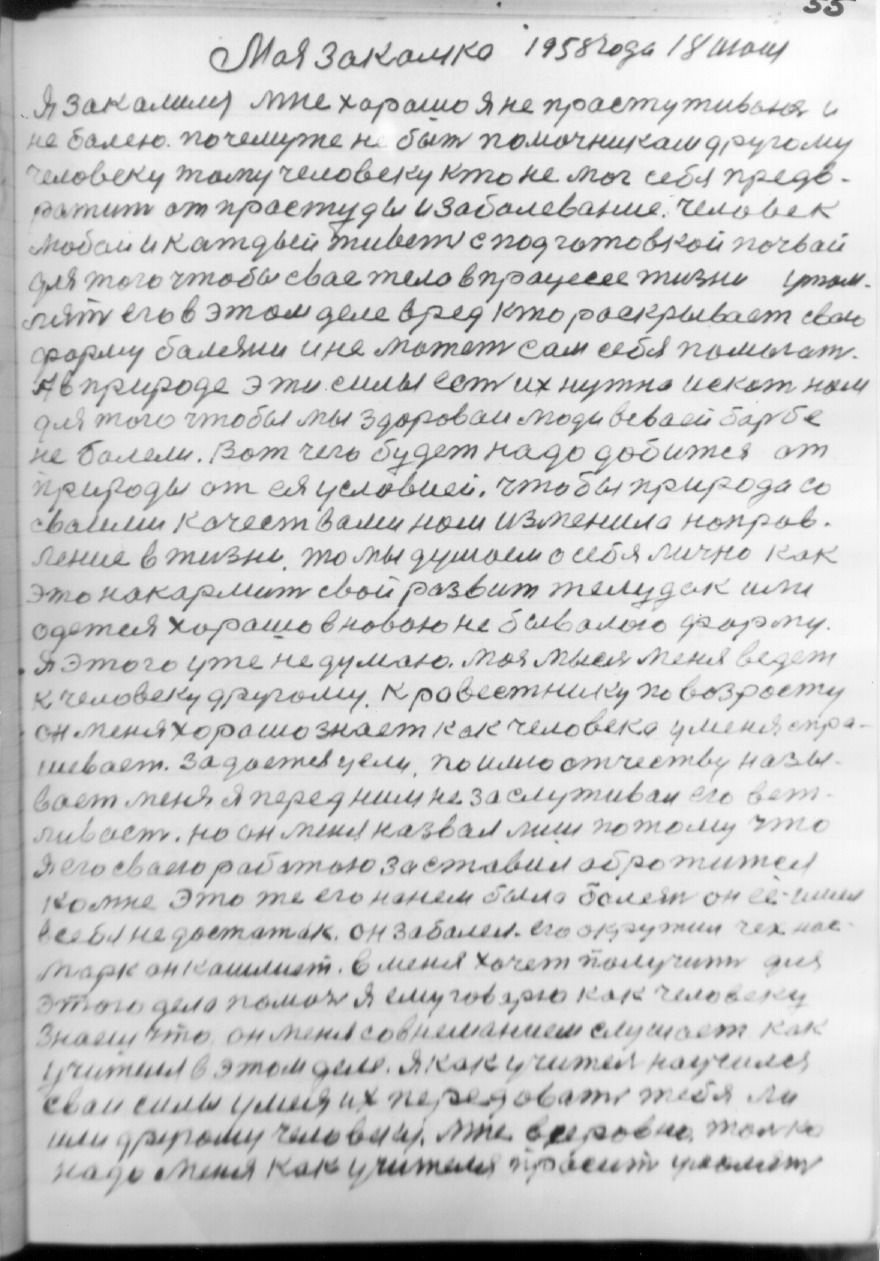 55
Моя закалка 1958 года 18 июля
Я закалился мне хорошо я не праступиваюя и
не балею. почемуже не быт помочникам другому
человеку тому человеку кто не мог себя предо-
ратит от праступы и забалевание. человек
любои и каждый живет с подготовкой почвай
для того чтобы свае тело в працессе жизни
лят его в этом деле вред кто раскрывает сваю
форму балезни и не может сам себя помогат.
А в природе эти силы ест их нужно искат нам
для того чтобы мы здороваи люди в сваей барбе
не балели. Вот чего будет надо добится от
природы от ея условией. чтобы природа со
сваими качествами нам изменила направ-
ление в жизни. то мы думаем о себя лично как
это накармит свой развит желудак или
одется хорошо в новою не бывалою форму.
Я этого уже не думаю. моя мысля меня ведет
к человеку другому. к равестнику по возросту
он меня хорошо знает как человека у меня спра-
шевает. задается цели. по имю отчеству назы-
вает меня я перед ним не заслуживал его веж-
ливаст. но он меня назвал лиш потому что
я его сваею работою заставил обротится
ко мне Это же его на нем была балезн он её имел
в себя недостатак. он забалел. его окружил чех нас-
марк он кашлиет. в меня хочет получит для
этого дела помоч я ему говарю как человеку
знаеш что. он меня со внеманием слушает как
учителя в этом деле. я как учител научился
сваи силы имея их передоват тебя ли
или другому человеку. мне все ровно толко
надо меня как учителя прасит умалят